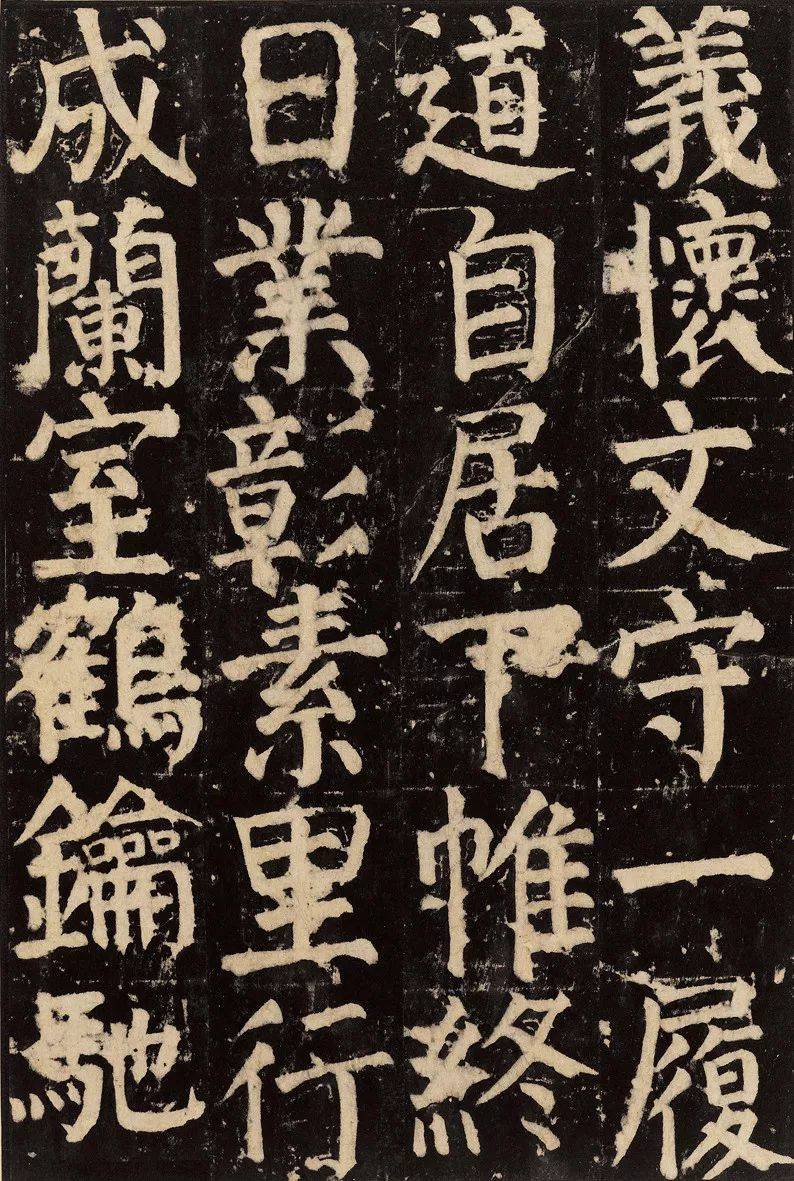 義懷文守一履
道自居下帷終
日業彰素里行
成蘭室鶴鑰馳